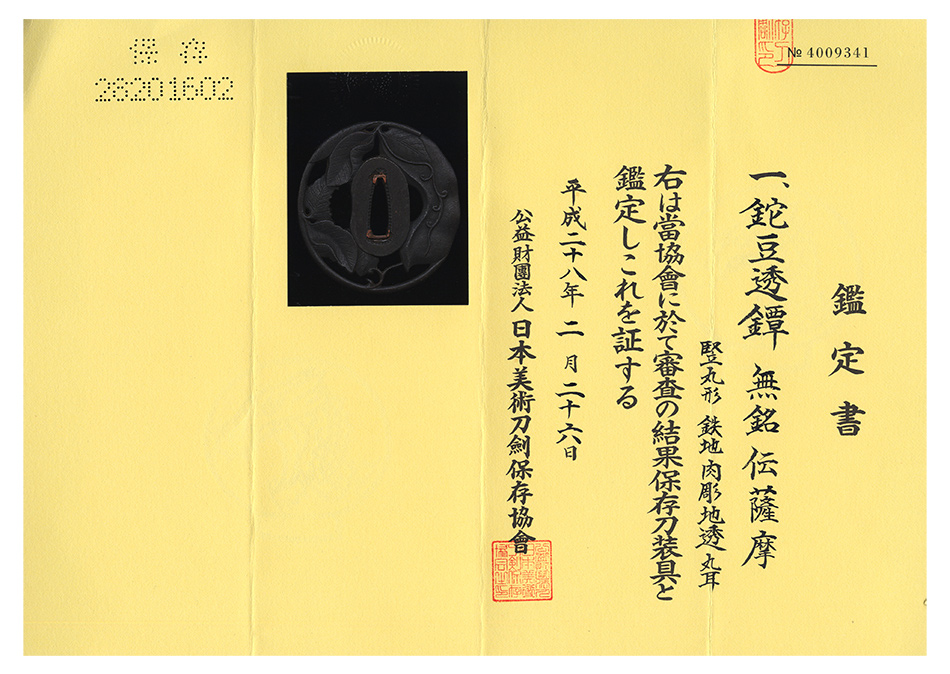 № 4009341
鑑定書
一、鉈豆透鐔 無銘 伝薩摩
竪丸形 鉄地 肉彫地透 丸耳
右は當協會に於て審査の結果保存刀装具と
鑑定しこれを証する
平成二十八年 二 月 二十六日
公益財團法人 日本美術刀劍保存協會
保 存
28201602